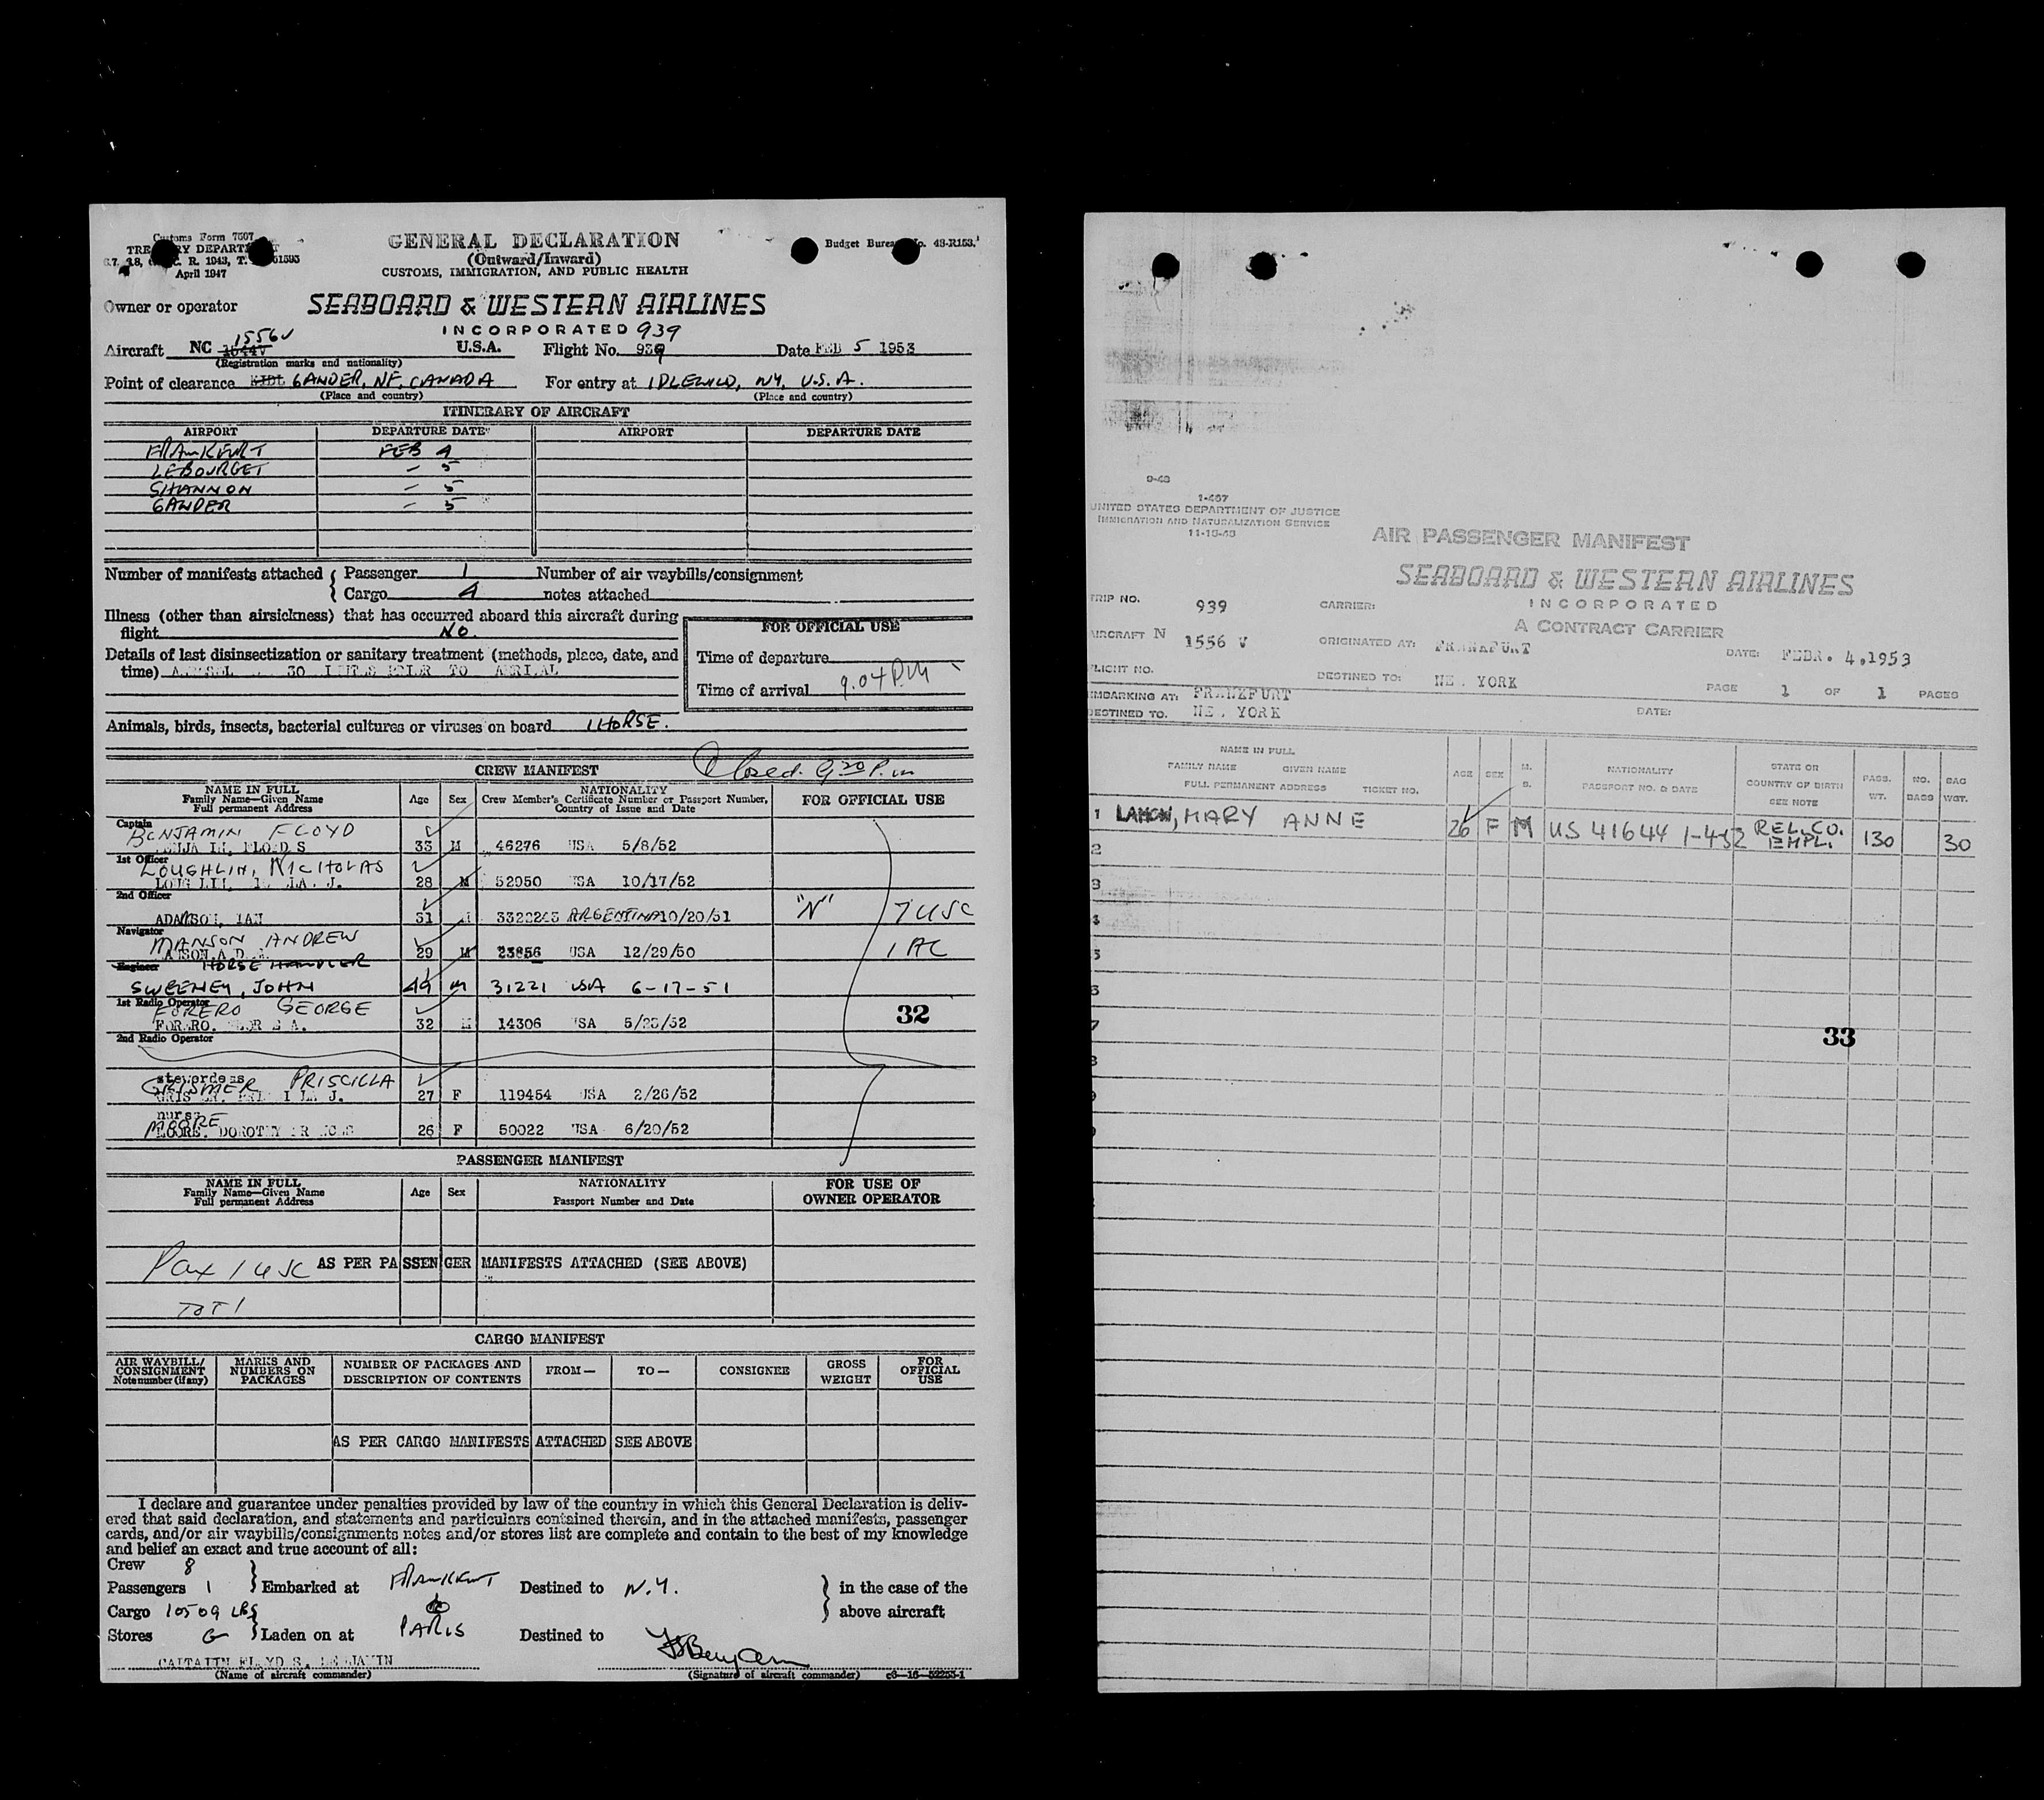 Customs Form 7507
TREASURY DEPARTMENT
April 1947
GENERAL DECLARATION
(Outward/Inward)
CUSTOMS, IMMIGRATION, AND PUBLIC HEALTH
Budget Bureau No. 48-R153.
Owner or operator SEABOARD & WESTERN AIRLINES
INCORPORATED 939
1556V
Aircraft NC 1544V U.S.A. Flight No. 939 Date FEB 5 1953
(Registration marks and nationality)
Point of clearance GANDER, NF, CANADA For entry at IDLEWILD, NY, U.S.A.
(Place and country) (Place and country)
ITINERARY OF AIRCRAFT
AIRPORT DEPARTURE DATE AIRPORT DEPARTURE DATE
FRANKFURT FEB 4
LEBOURGET - 5
SHANNON - 5
GANDER - 5
Number of manifests attached { Passenger 1 Number of air waybills/consignment
Cargo 4 notes attached
Illness (other than airsickness) that has occurred aboard this aircraft during
flight NO
FOR OFFICIAL USE
Details of last disinsectization or sanitary treatment (methods, place, date, and
time) 30 PRIOR TO
Time of departure
Time of arrival 9:04 PM
Animals, birds, insects, bacterial cultures or viruses on board 1 HORSE.
Closed 9 20 P.m
CREW MANIFEST
NAME IN FULL
Family Name—Given Name
Full permanent Address
Age Sex
NATIONALITY
Crew Member's Certificate Number or Passport Number,
Country of Issue and Date
FOR OFFICIAL USE
Captain
BENJAMIN FLOYD
BENJAMIN, FLOYD S 33 M 46276 USA 5/8/52
1st Officer
LOUGHLIN, NICHOLAS
28 M 52950 USA 10/17/52
2nd Officer
ADAMSON, IAN 31 M 3322243 ARGENTINA 10/20/51 "N" 7 USC
Navigator
MANSON ANDREW
29 M 23856 USA 12/29/50 1 AC
Engineer HORSE HANDLER
SWEENEY, JOHN 44 M 31221 USA 6-17-51
1st Radio Operator
FORERO GEORGE
FORERO, GEORGE A. 32 M 14306 USA 5/23/52
32
2nd Radio Operator
stewardess
GRISMER PRISCILLA
27 F 119454 USA 2/26/52
nurse
MOORE
MOORE, DOROTHY FRANCES 26 F 50022 USA 6/20/52
PASSENGER MANIFEST
NAME IN FULL
Family Name—Given Name
Full permanent Address
Age Sex
NATIONALITY
Passport Number and Date
FOR USE OF
OWNER OPERATOR
Pax 1 USC AS PER PASSENGER MANIFESTS ATTACHED (SEE ABOVE)
TOT 1
CARGO MANIFEST
AIR WAYBILL/
CONSIGNMENT
Note number (if any)
MARKS AND
NUMBERS ON
PACKAGES
NUMBER OF PACKAGES AND
DESCRIPTION OF CONTENTS
FROM— TO— CONSIGNEE
GROSS
WEIGHT
FOR
OFFICIAL
USE
AS PER CARGO MANIFESTS ATTACHED SEE ABOVE
I declare and guarantee under penalties provided by law of the country in which this General Declaration is deliv-
ered that said declaration, and statements and particulars contained therein, and in the attached manifests, passenger
cards, and/or air waybills/consignments notes and/or stores list are complete and contain to the best of my knowledge
and belief an exact and true account of all:
Crew 8
Passengers 1 } Embarked at FRANKFURT Destined to N.Y. } in the case of the
Cargo 10509 LBS above aircraft
Stores } Laden on at PARIS Destined to
CAPTAIN FLOYD S. BENJAMIN FSBenjamin
(Name of aircraft commander) (Signature of aircraft commander) c6—16—52255-1
9-48
1-467
UNITED STATES DEPARTMENT OF JUSTICE
IMMIGRATION AND NATURALIZATION SERVICE
11-15-48
AIR PASSENGER MANIFEST
SEABOARD & WESTERN AIRLINES
INCORPORATED
A CONTRACT CARRIER
TRIP NO. 939 CARRIER:
AIRCRAFT N 1556 V ORIGINATED AT: FRANKFURT DATE: FEBR. 4, 1953
FLIGHT NO. DESTINED TO: NEW YORK PAGE 1 OF 1 PAGES
EMBARKING AT: FRANKFURT
DESTINED TO. NEW YORK DATE:
NAME IN FULL
FAMILY NAME GIVEN NAME
FULL PERMANENT ADDRESS TICKET NO.
AGE SEX M. S.
NATIONALITY
PASSPORT NO. & DATE
STATE OR
COUNTRY OF BIRTH
SEE NOTE
PASS. WT.
NO. BAGS
BAG WGT.
1 LAMON, MARY ANNE 26 F M US 41644 1-4-52 REL. CO. EMPL. 130 30
2
3
4
5
6
7
33
8
9